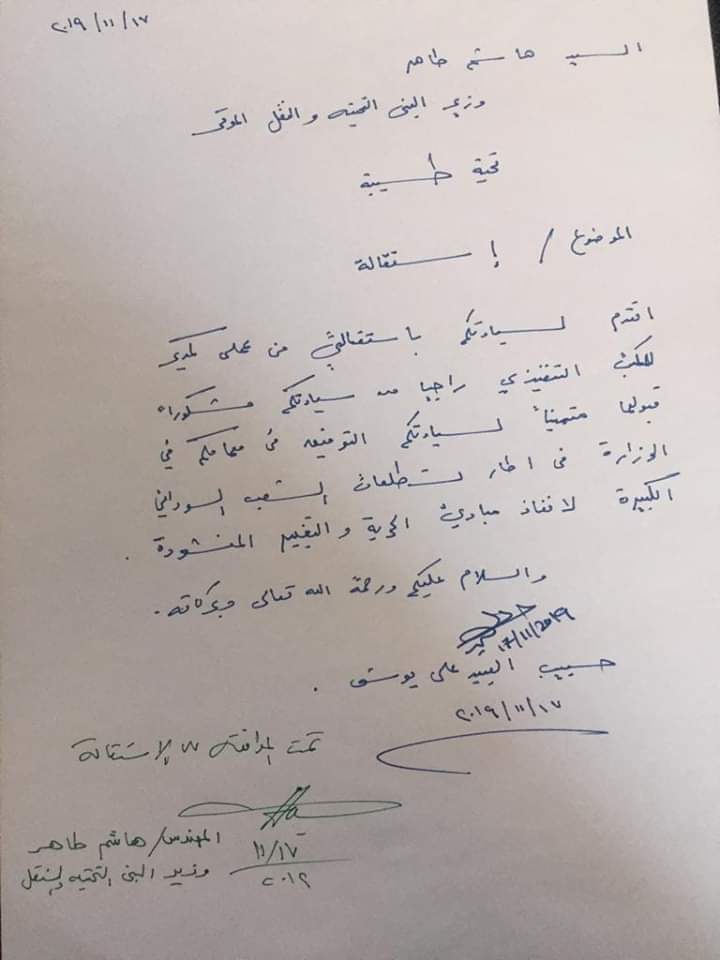 ٢٠١٩/١١/١٧
السيد هاشم طاهر
وزير البنى التحتيه والنقل الموقر
تحية طيبة
الموضوع / إستقالة
اتقدم لسيادتكم باستقالتي من عملى كمدير
للمكتب التنفيذي راجيا من سيادتكم مشكوراً
قبولها متمنياً لسيادتكم التوفيق في مهامكم في
الوزارة فى اطار تطلعات الشعب السوداني
الكبيرة لانفاذ مبادئ الحرية و التغيير المنشودة .
والسلام عليكم ورحمة الله تعالى وبركاته .
17/11/2019
حسيب السيد على يوسف .
٢٠١٩/١١/١٧
تمت الموافقه على الإستقالة
المهندس/هاشم طاهر
وزير البنى التحتيه والنقل
١١/١٧
٢٠١٩